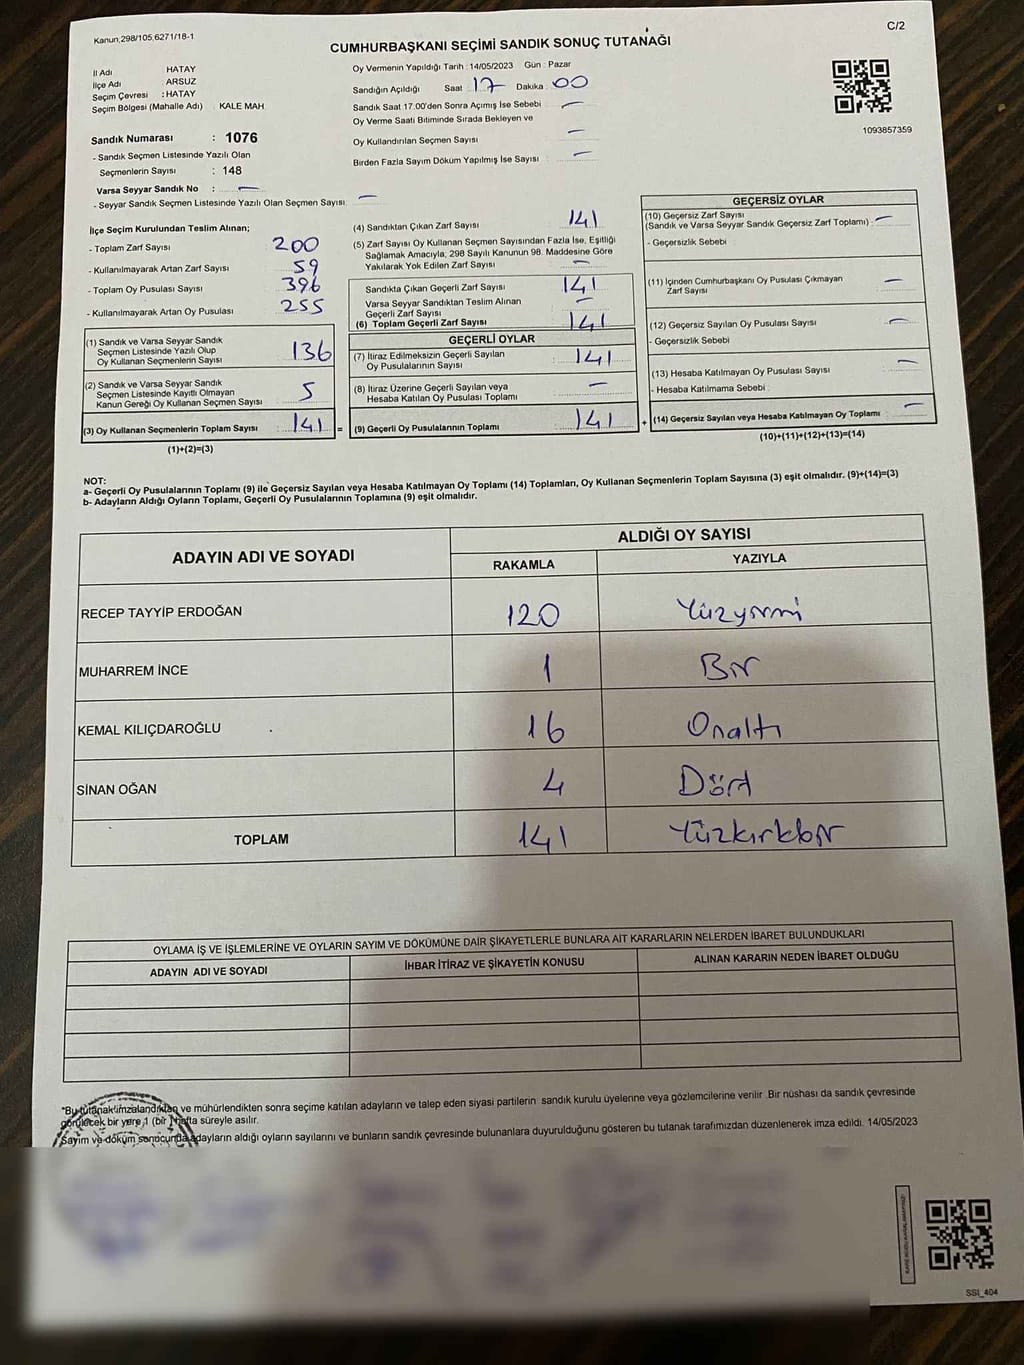 Kanun,298/105,6271/18-1
C/2
CUMHURBAŞKANI SEÇİMİ SANDIK SONUÇ TUTANAĞI
İl Adı HATAY
İlçe Adı : ARSUZ
Seçim Çevresi : HATAY
Seçim Bölgesi (Mahalle Adı) KALE MAH.
Sandık Numarası : 1076
- Sandık Seçmen Listesinde Yazılı Olan
Seçmenlerin Sayısı : 148
Varsa Seyyar Sandık No : —
- Seyyar Sandık Seçmen Listesinde Yazılı Olan Seçmen Sayısı: —
Oy Vermenin Yapıldığı Tarih : 14/05/2023 Gün : Pazar
Sandığın Açıldığı Saat 17 Dakika : 00
Sandık Saat 17:00'den Sonra Açımış İse Sebebi —
Oy Verme Saati Bitiminde Sırada Bekleyen ve
Oy Kullandırılan Seçmen Sayısı —
Birden Fazla Sayım Döküm Yapılmış İse Sayısı : —
1093857359
İlçe Seçim Kurulundan Teslim Alınan;
- Toplam Zarf Sayısı 200
- Kullanılmayarak Artan Zarf Sayısı : 59
- Toplam Oy Pusulası Sayısı : 396
- Kullanılmayarak Artan Oy Pusulası : 255
(1) Sandık ve Varsa Seyyar Sandık
Seçmen Listesinde Yazılı Olup
Oy Kullanan Seçmenlerin Sayısı : 136
(2) Sandık ve Varsa Seyyar Sandık
Seçmen Listesinde Kayıtlı Olmayan
Kanun Gereği Oy Kullanan Seçmen Sayısı : 5
(3) Oy Kullanan Seçmenlerin Toplam Sayısı : 141 =
(1)+(2)=(3)
(4) Sandıktan Çıkan Zarf Sayısı : 141
(5) Zarf Sayısı Oy Kullanan Seçmen Sayısından Fazla İse, Eşitliği
Sağlamak Amacıyla, 298 Sayılı Kanunun 98. Maddesine Göre
Yakılarak Yok Edilen Zarf Sayısı : —
Sandıkta Çıkan Geçerli Zarf Sayısı : 141
Varsa Seyyar Sandıktan Teslim Alınan
Geçerli Zarf Sayısı : —
(6) Toplam Geçerli Zarf Sayısı : 141
GEÇERLİ OYLAR
(7) İtiraz Edilmeksizin Geçerli Sayılan
Oy Pusulalarının Sayısı : 141
(8) İtiraz Üzerine Geçerli Sayılan veya
Hesaba Katılan Oy Pusulası Toplamı : —
(9) Geçerli Oy Pusulalarının Toplamı : 141 +
GEÇERSİZ OYLAR
(10) Geçersiz Zarf Sayısı
(Sandık ve Varsa Seyyar Sandık Geçersiz Zarf Toplamı) : —
- Geçersizlik Sebebi
(11) İçinden Cumhurbaşkanı Oy Pusulası Çıkmayan
Zarf Sayısı —
(12) Geçersiz Sayılan Oy Pusulası Sayısı : —
- Geçersizlik Sebebi
(13) Hesaba Katılmayan Oy Pusulası Sayısı : —
- Hesaba Katılmama Sebebi
(14) Geçersiz Sayılan veya Hesaba Katılmayan Oy Toplamı : —
(10)+(11)+(12)+(13)=(14)
NOT:
a- Geçerli Oy Pusulalarının Toplamı (9) ile Geçersiz Sayılan veya Hesaba Katılmayan Oy Toplamı (14) Toplamları, Oy Kullanan Seçmenlerin Toplam Sayısına (3) eşit olmalıdır. (9)+(14)=(3)
b- Adayların Aldığı Oyların Toplamı, Geçerli Oy Pusulalarının Toplamına (9) eşit olmalıdır.
ADAYIN ADI VE SOYADI ALDIĞI OY SAYISI
RAKAMLA YAZIYLA
RECEP TAYYİP ERDOĞAN 120 Yüzyirmi
MUHARREM İNCE 1 Bir
KEMAL KILIÇDAROĞLU 16 Onaltı
SİNAN OĞAN 4 Dört
TOPLAM 141 Yüzkırkbir
OYLAMA İŞ VE İŞLEMLERİNE VE OYLARIN SAYIM VE DÖKÜMÜNE DAİR ŞİKAYETLERLE BUNLARA AİT KARARLARIN NELERDEN İBARET BULUNDUKLARI
ADAYIN ADI VE SOYADI İHBAR İTİRAZ VE ŞİKAYETİN KONUSU ALINAN KARARIN NEDEN İBARET OLDUĞU
*Bu tutanak imzalandıktan ve mühürlendikten sonra seçime katılan adayların ve talep eden siyasi partilerin sandık kurulu üyelerine veya gözlemcilerine verilir. Bir nüshası da sandık çevresinde
görülecek bir yere 1 (bir) hafta süreyle asılır.
Sayım ve döküm sonucunda adayların aldığı oyların sayılarını ve bunların sandık çevresinde bulunanlara duyurulduğunu gösteren bu tutanak tarafımızdan düzenlenerek imza edildi. 14/05/2023
SSI_404